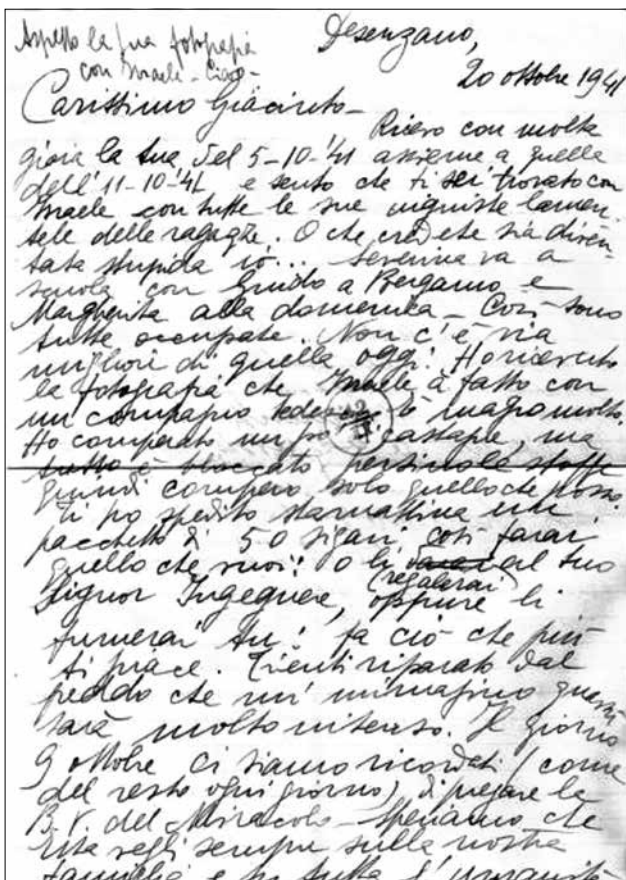 Aspetto la tua fotografia
con Israele - Ciao -
Desenzano,
20 ottobre 1941
Carissimo Giacinto -
Ricevo con molta
gioia la tua del 5-10-'41 assieme a quella
dell'11-10-'41 e sento che ti sei trovato con
Israele con tutte le sue lamen
tele delle ragazze. O che credete sia diven-
tata stupida io... Severina va a
scuola con Guido a Bergamo e
Margherita alla domenica - Così sono
tutte occupate. Non c'è via
migliore di quella oggi! Ho ricevuto
la fotografia che Israele à fatto con
un compagno è magro molto.
Ho comperato un castagne, ma
tutto è bloccato persino le stoffe
quindi compero solo quello che posso.
Ti ho spedito stamattina un
pacchetto di 50 sigari così farai
quello che vuoi! O li al tuo
(regalerai)
Signor Ingegnere, oppure li
fumerai tu! fa ciò che più
ti piace. Tienti riparato dal
freddo che m'immagino questi
sarà molto intenso. Il giorno
9 ottobre ci siamo ricordati (come
del resto ogni giorno) di pregare la
B.V. del Miracolo - Speriamo che
Essa vegli sempre sulla nostra
famiglia e su tutta l'umanità